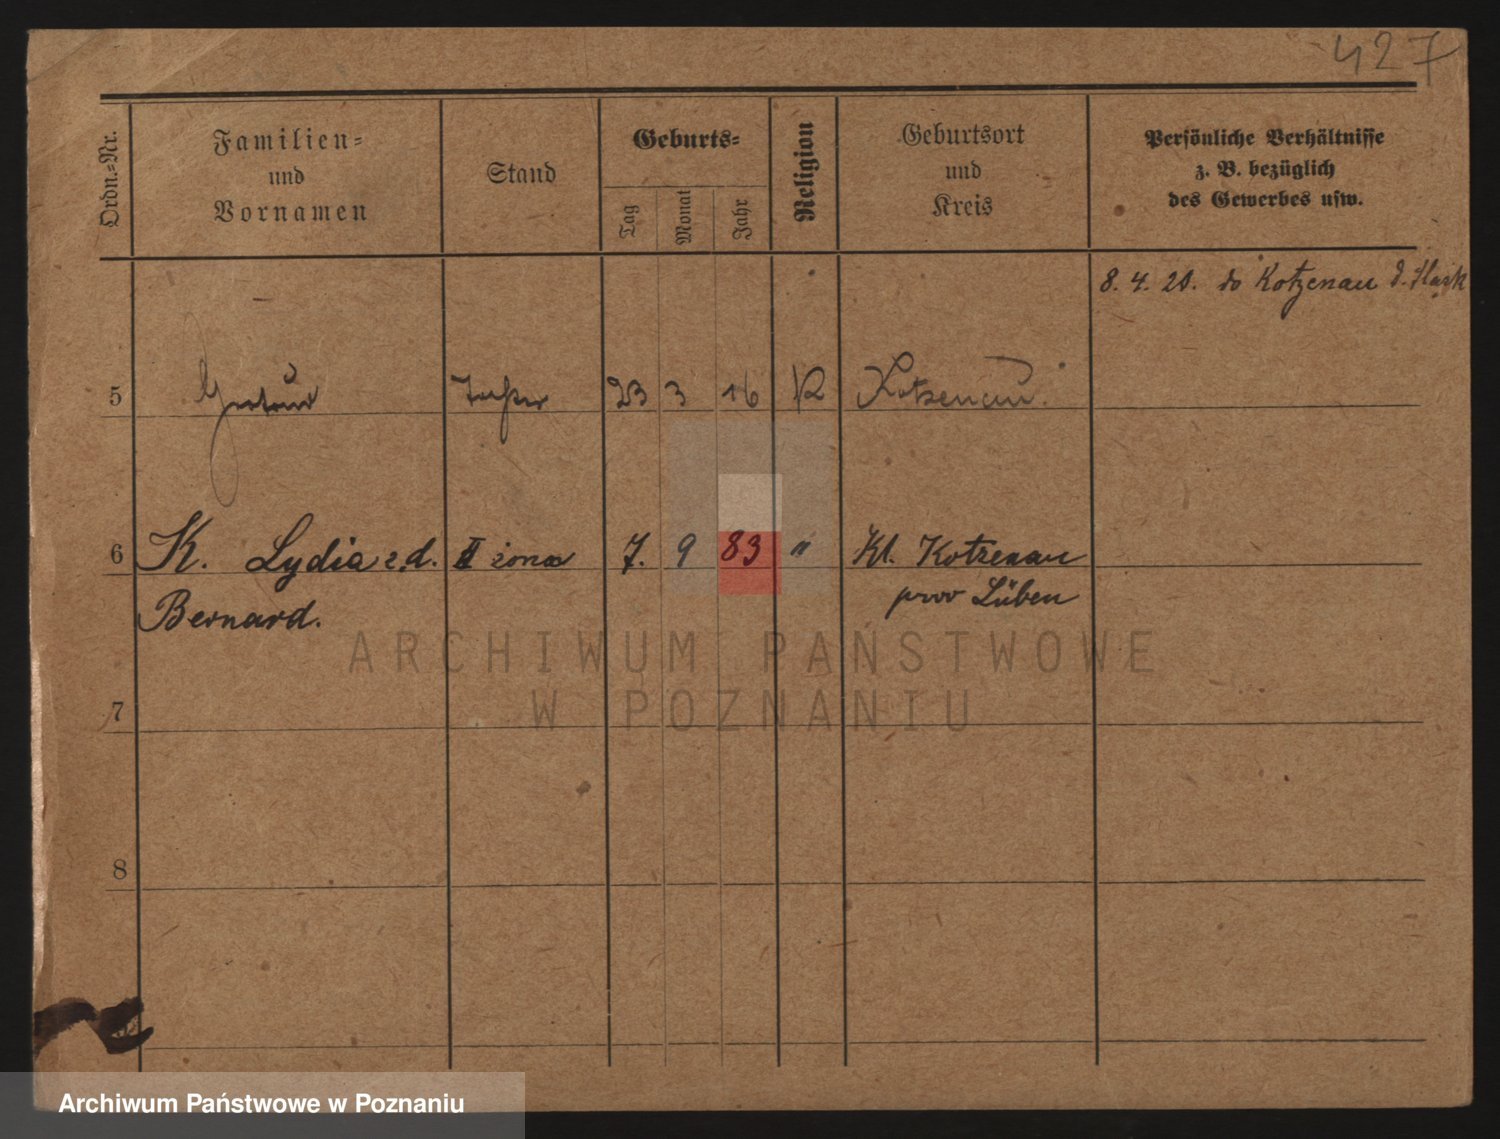 427
Ordn.-Nr.
Familien-
und
Vornamen
Stand
Geburts-
Tag
Monat
Jahr
Religion
Geburtsort
und
Kreis
Persönliche Verhältnisse
z. B. bezüglich
des Gewerbes usw.
8. 4. 20. do Kotzenau
5 23 3 16 K Kotzenau.
6 K. Lydia z d. II żona 7. 9 83 " Kl. Kotzenau
Bernard. pow Lüben
7
8
ARCHIWUM PAŃSTWOWE
W POZNANIU
Archiwum Państwowe w Poznaniu